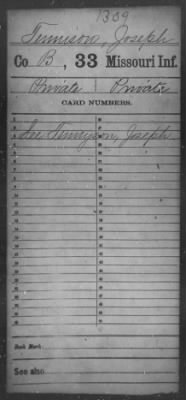 1309
Tennison, Joseph
Co. B, 33 Missouri Inf.
Private | Private
CARD NUMBERS.
See Tennyson, Joseph
Book Mark:
See also